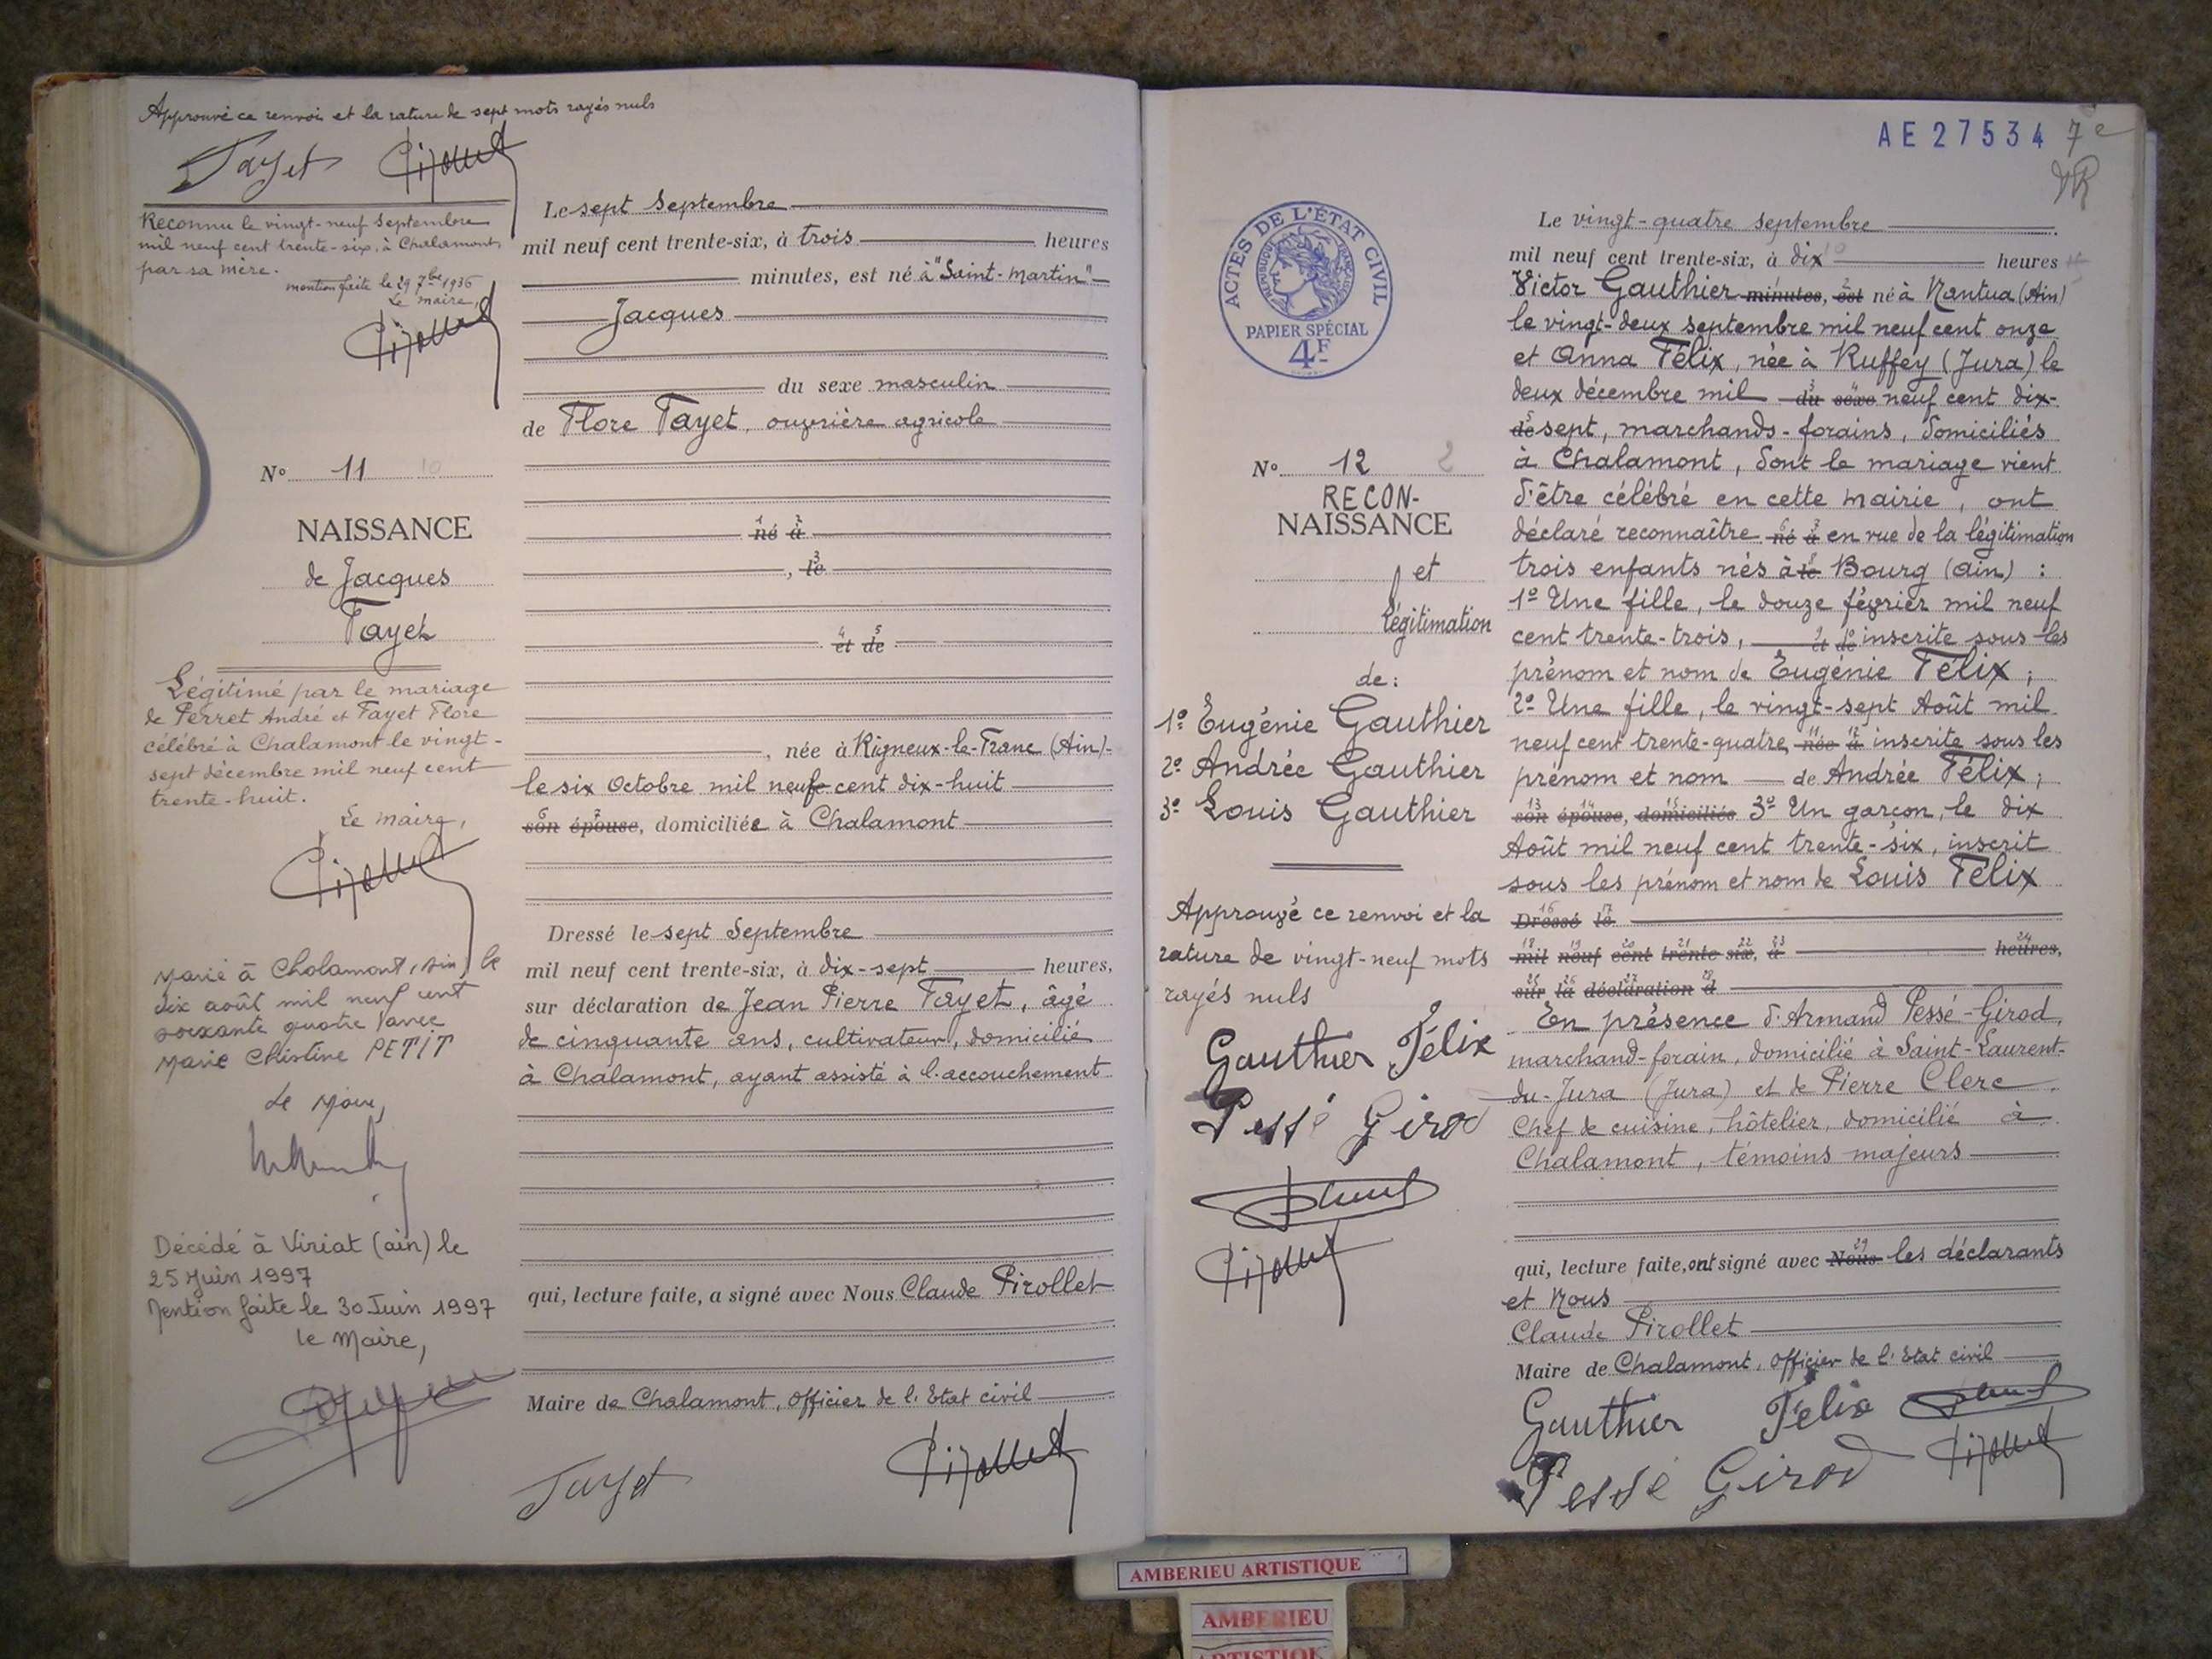 Approuvé ce renvoi et la rature de sept mots rayés nuls
Fayet Pirollet
Reconnu le vingt-neuf Septembre
mil neuf cent trente-six, à Chalamont,
par sa mère.
mention faite le 29 7bre 1936
Le maire,
Pirollet
N° 11 10
NAISSANCE
de Jacques
Fayet
Légitimé par le mariage
de Perret André et Fayet Flore
célébré à Chalamont le vingt-
sept décembre mil neuf cent
trente-huit.
Le maire,
Pirollet
Marié à Chalamont, Ain, le
dix août mil neuf cent
soixante quatre avec
Marie Christine PETIT
Le Maire,
Décédé à Viriat (ain) le
25 Juin 1997
Mention faite le 30 Juin 1997
le Maire,
Le sept Septembre
mil neuf cent trente-six, à trois heures
minutes, est né à "Saint-Martin"
Jacques
du sexe masculin
de Flore Fayet, ouvrière agricole
1 2
né à
3
, le
4 5
et de
, née à Rigneux-le-Franc (Ain)-
le six Octobre mil neuf cent dix-huit
6 7
son épouse, domiciliée à Chalamont
Dressé le sept Septembre
mil neuf cent trente-six, à dix-sept heures,
sur déclaration de Jean Pierre Fayet, âgé
de cinquante ans, cultivateur, domicilié
à Chalamont, ayant assisté à l'accouchement
qui, lecture faite, a signé avec Nous Claude Pirollet
Maire de Chalamont, Officier de l'Etat civil
Fayet Pirollet
AE27534 7e
ACTES DE L'ÉTAT CIVIL
RÉPUBLIQUE FRANÇAISE
PAPIER SPÉCIAL
4F
N° 12 2
RECON-
NAISSANCE
et
légitimation
de:
1° Eugénie Gauthier
2° Andrée Gauthier
3° Louis Gauthier
Approuvé ce renvoi et la
rature de vingt-neuf mots
rayés nuls
Gauthier Félix
Pessé Girod
Pirollet
Le vingt-quatre septembre
mil neuf cent trente-six, à dix heures
Victor Gauthier minutes, est né à Nantua (Ain)
le vingt-deux septembre mil neuf cent onze
et Anna Félix, née à Ruffey (Jura) le
deux décembre mil du sexe neuf cent dix-
de sept, marchands-forains, domiciliés
à Chalamont, dont le mariage vient
d'être célébré en cette mairie, ont
déclaré reconnaître né à en vue de la légitimation
trois enfants nés à le Bourg (ain) :
1° Une fille, le douze février mil neuf
cent trente-trois, et de inscrite sous les
prénom et nom de Eugénie Félix ;
2° Une fille, le vingt-sept Août mil
neuf cent trente-quatre, née à inscrite sous les
prénom et nom de Andrée Félix ;
13 14 15
son épouse, domiciliés 3° Un garçon, le dix
Août mil neuf cent trente-six, inscrit
sous les prénom et nom de Louis Félix
16 17
Dressé le
18 19 20 21 22 23 24
mil neuf cent trente-six, à heures,
25 26 27 28
sur la déclaration d
En présence d'Armand Pessé-Girod,
marchand-forain, domicilié à Saint-Laurent-
du-Jura (Jura) et de Pierre Clerc
Chef de cuisine, hôtelier, domicilié à
Chalamont, témoins majeurs
29
qui, lecture faite, ont signé avec Nous les déclarants
et Nous
Claude Pirollet
Maire de Chalamont, Officier de l'Etat civil
Gauthier Félix
Pessé Girod Pirollet
AMBERIEU ARTISTIQUE
AMBERIEU
ARTISTIQUE